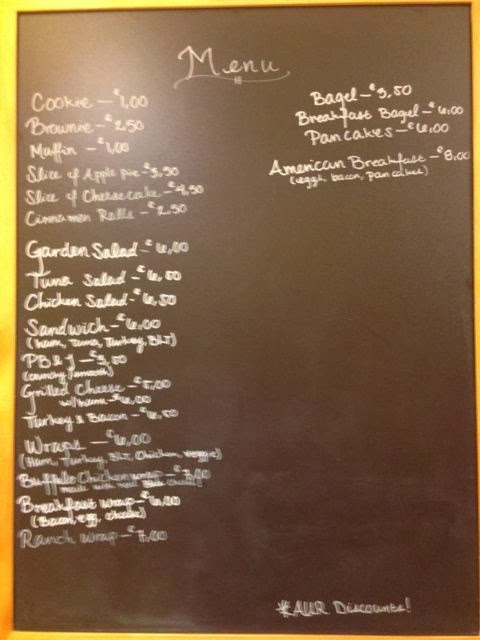 Menu
Cookie - €1,00
Brownie - €2,50
Muffin - €1,00
Slice of Apple pie - €3,50
Slice of Cheesecake - €4,50
Cinnamon Rolls - €2,50
Garden Salad - €6,00
Tuna Salad - €6,50
Chicken Salad - €6,50
Sandwich - €6,00
(ham, Tuna, Turkey, BLT)
PB & J - €3,50
(crunchy/smooth)
Grilled Cheese - €5,00
w/ham - €6,00
Turkey & Bacon - €6,50
Wraps - €6,00
(Ham, Turkey, BLT, Chicken, veggie)
Buffalo Chicken wrap - €7,00
made with real blue cheese!
Breakfast wrap - €6,00
(Bacon, egg, cheese)
Ranch wrap - €7,00
Bagel - €3,50
Breakfast Bagel - €6,00
Pancakes - €6,00
American Breakfast - €8,00
(eggs, bacon, pancakes)
*AUR Discounts!